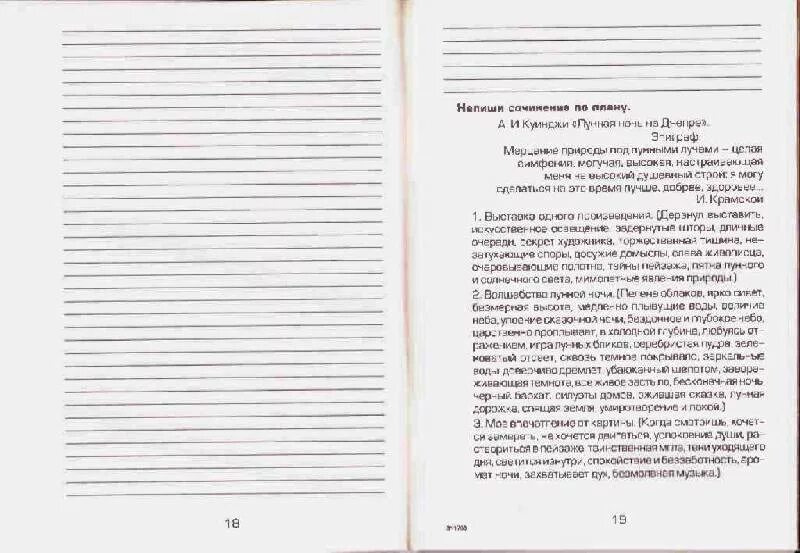 18
Напиши сочинение по плану.
А. И. Куинджи «Лунная ночь на Днепре».
Эпиграф
Мерцание природы под лунными лучами – целая
симфония, могучая, высокая, настраивающая
меня на высокий душевный строй: я могу
сделаться на это время лучше, добрее, здоровее...
И. Крамской
1. Выставка одного произведения. (Дерзнул выставить,
искусственное освещение, задернутые шторы, длинные
очереди, секрет художника, торжественная тишина, не-
затухающие споры, досужие домыслы, слава живописца,
очаровывающие полотно, тайны пейзажа, пятна лунного
и солнечного света, мимолетные явления природы.)
2. Волшебство лунной ночи. (Пелена облаков, ярко сияет,
безмерная высота, медленно плывущие воды, величие
неба, упоение сказочной ночи, бездонное и глубокое небо,
царственно проплывает, в холодной глубине, любуясь от-
ражением, игра лунных бликов, серебристая пудра, зеле-
новатый отсвет, сквозь темное покрывало, зеркальные
воды, доверчиво дремлет, убаюканный шепотом, заворо-
живающая темнота, все живое застыло, бесконечная ночь,
черный бархат, силуэты домов, ожившая сказка, лунная
дорожка, спящая земля, умиротворение и покой.)
3. Мое впечатление от картины. (Когда смотришь, хочет-
ся замереть, не хочется двигаться, успокоение души, ра-
створиться в пейзаже, таинственная мгла, тени уходящего
дня, светится изнутри, спокойствие и беззаботность, аро-
мат ночи, захватывает дух, безмолвная музыка.)
19